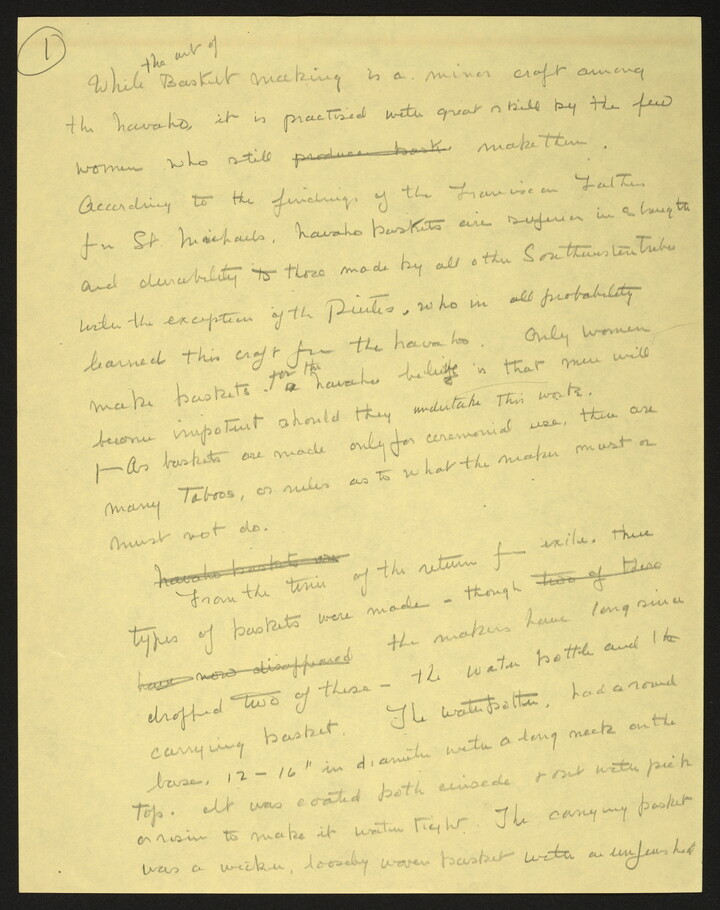 1
the art of
While Basket making is a minor craft among
the Navaho, it is practised with great skill by the few
women who still produce bask make them.
According to the findings of the Franciscan Fathers
fm St. Michaels, Navaho baskets are superior in strength
and durability to those made by all other Southwestern tribes
with the exception of the Piutes, who in all probability
learned this craft fm the Navaho. Only women
make baskets. for the Navaho belief is that men will
become impotent should they undertake this work.
As baskets are made only for ceremonial use, there are
many Taboos, or rules as to what the maker must or
must not do.
Navaho baskets are
From the time of the return fm exile. three
types of baskets were made - though two of these
have now disappeared the makers have long since
dropped two of these - the water bottle and the
carrying basket. The water bottle, had a round
base, 12 - 16" in diameter with a long neck on the
top. It was coated both inside & out with pitch
or resin to make it water tight. The carrying basket
was a wicker, loosely woven basket with an unfinished